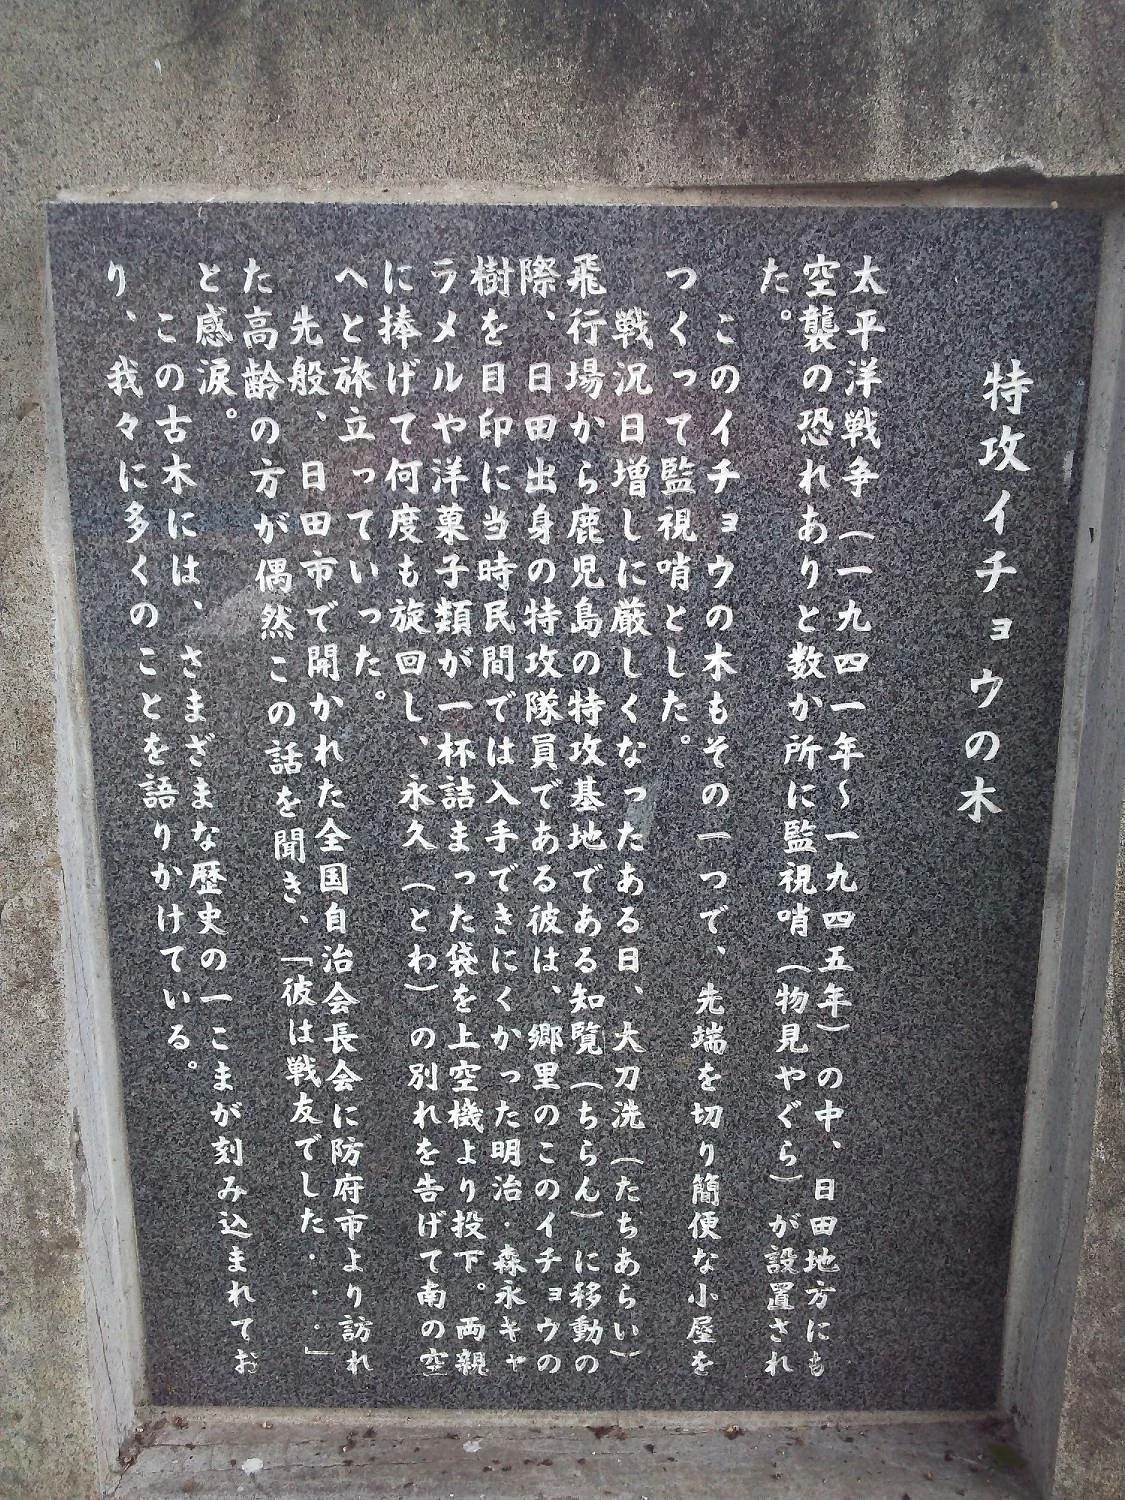 特攻イチョウの木
太平洋戦争（一九四一年～一九四五年）の中、日田地方にも
空襲の恐れありと数か所に監視哨（物見やぐら）が設置され
た。
このイチョウの木もその一つで、先端を切り簡便な小屋を
つくって監視哨とした。
戦況日増しに厳しくなったある日、大刀洗（たちあらい）
飛行場から鹿児島の特攻基地である知覧（ちらん）に移動の
際、日田出身の特攻隊員である彼は、郷里のこのイチョウの
樹を目印に当時民間では入手できにくかった明治・森永キャ
ラメルや洋菓子類が一杯詰まった袋を上空機より投下。両親
に捧げて何度も旋回し、永久（とわ）の別れを告げて南の空
へと旅立っていった。
先般、日田市で開かれた全国自治会長会に防府市より訪れ
た高齢の方が偶然この話を聞き、「彼は戦友でした・・・」
と感涙。
この古木には、さまざまな歴史の一こまが刻み込まれてお
り、我々に多くのことを語りかけている。